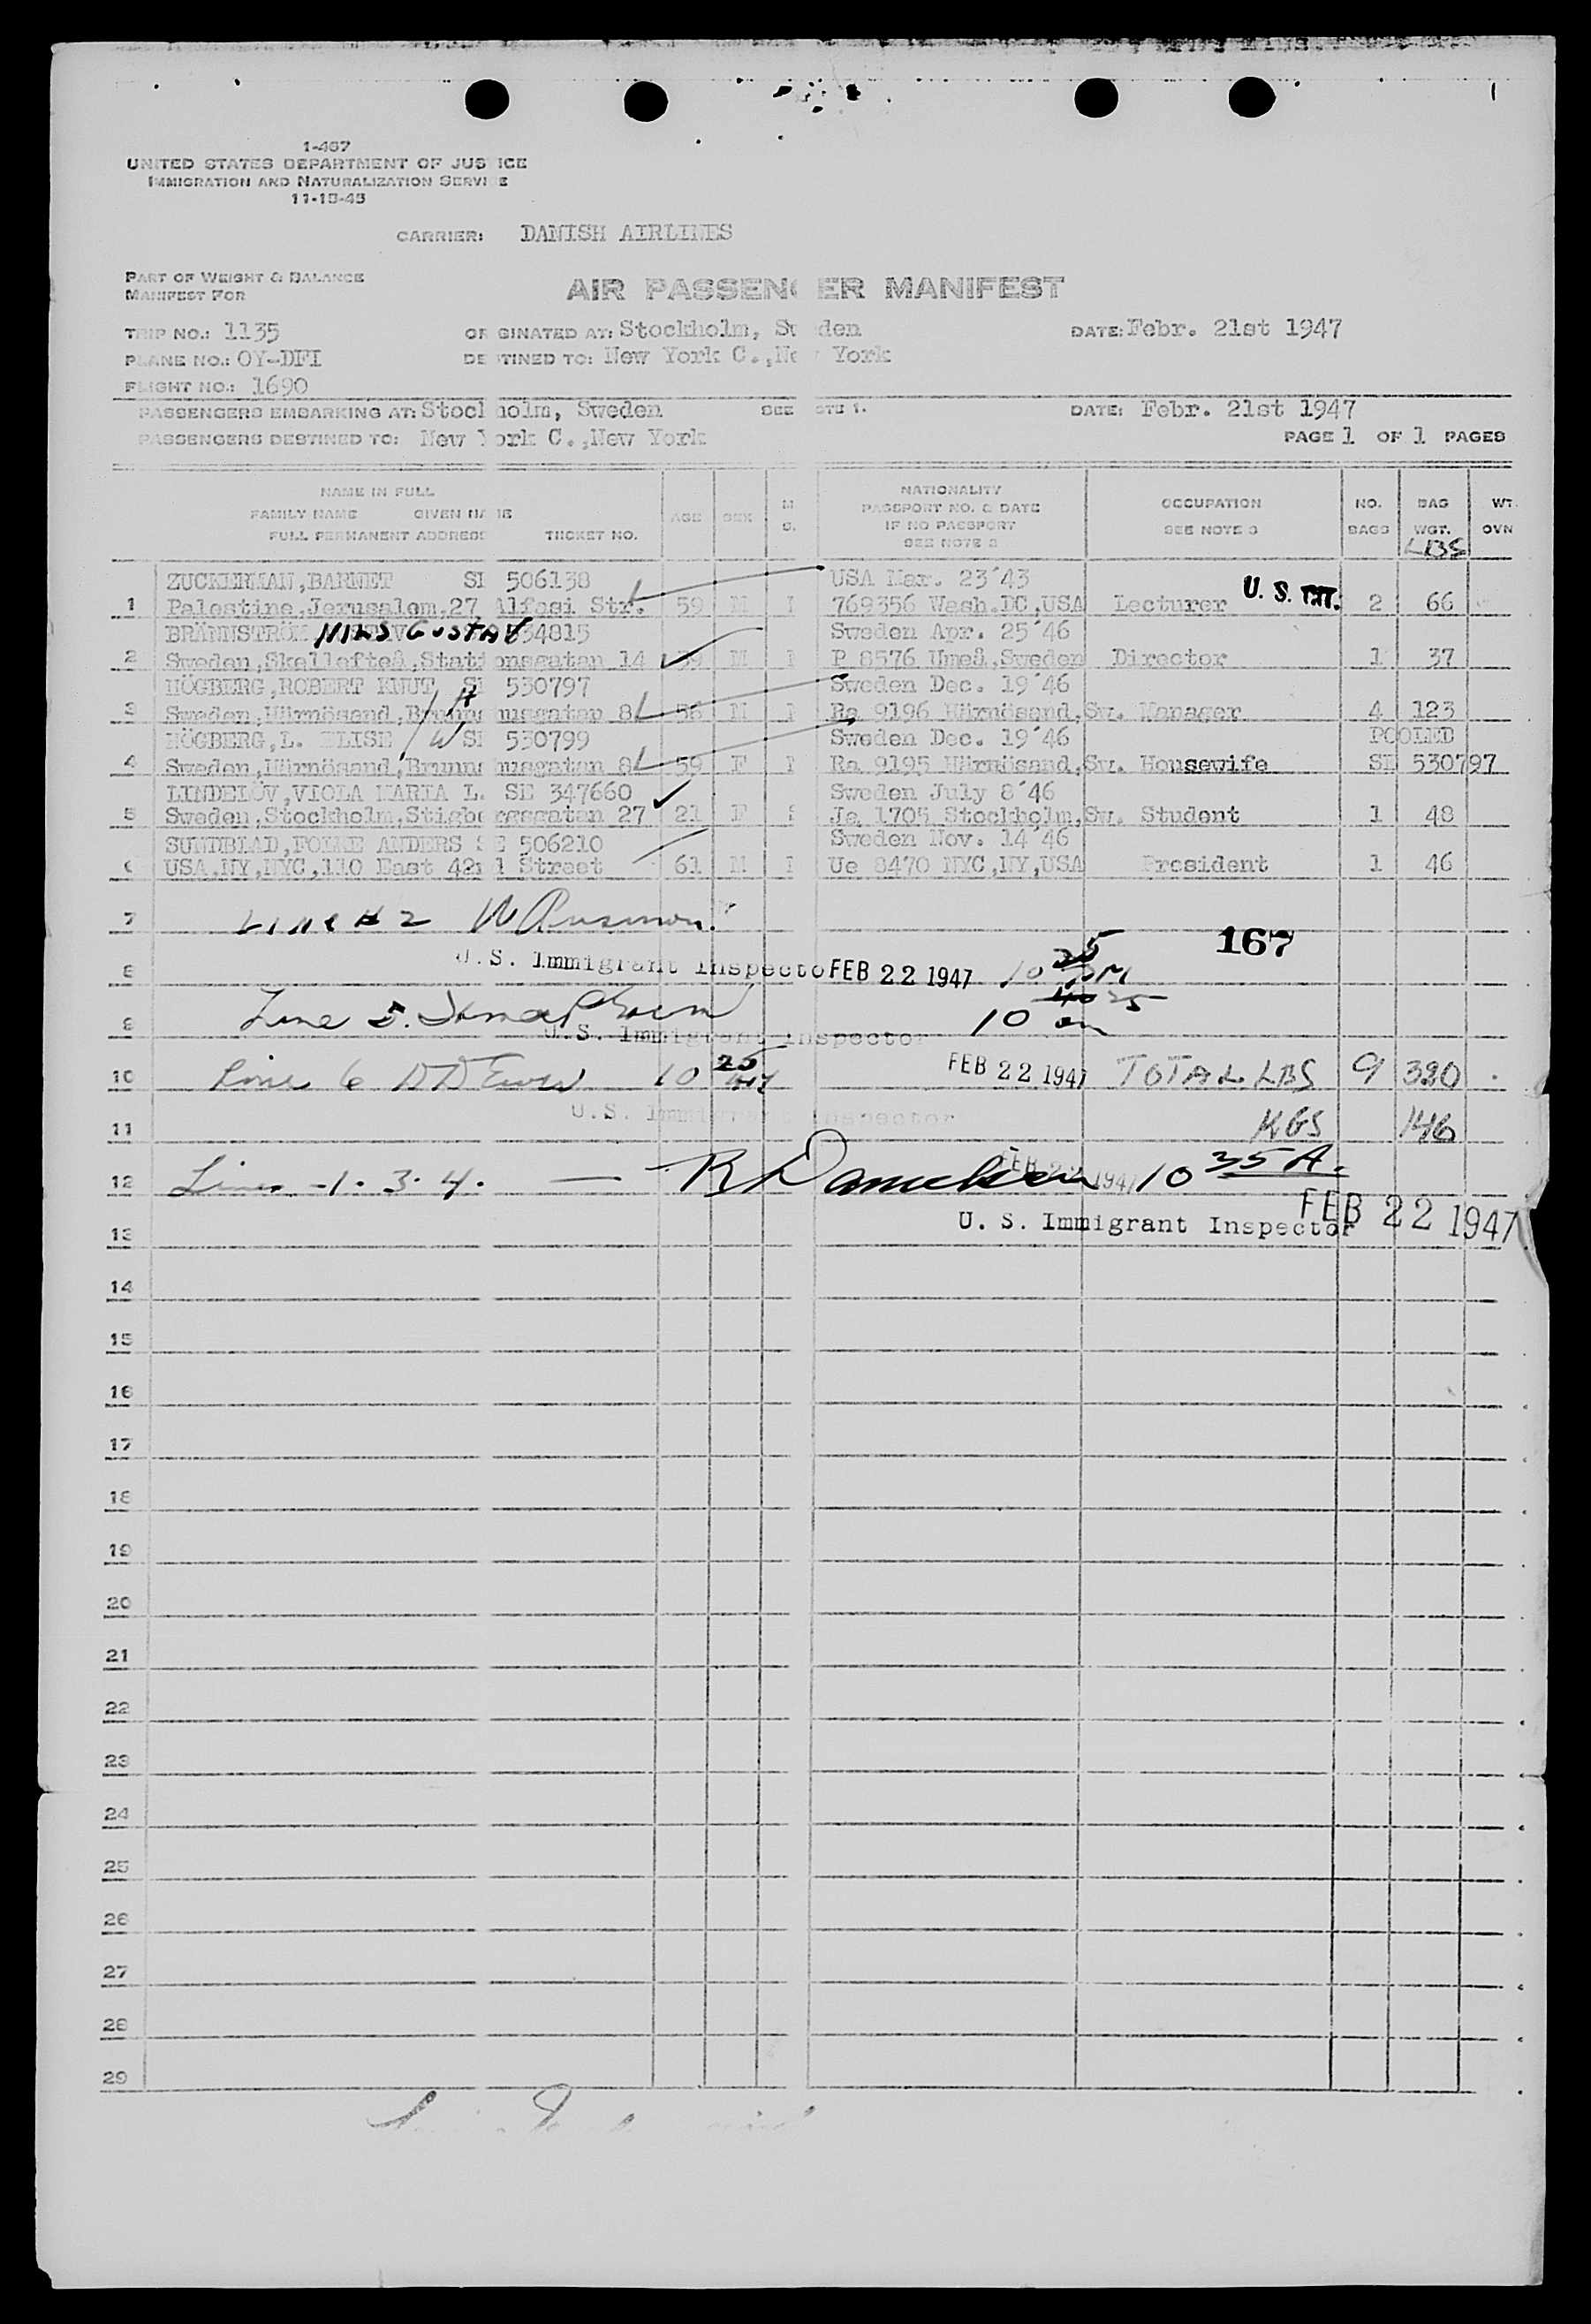 1-467
UNITED STATES DEPARTMENT OF JUSTICE
IMMIGRATION AND NATURALIZATION SERVICE
11-18-45
CARRIER: DANISH AIRLINES
PART OF WEIGHT & BALANCE
MANIFEST FOR
AIR PASSENGER MANIFEST
TRIP NO.: 1135 ORIGINATED AT: Stockholm, Sweden DATE: Febr. 21st 1947
PLANE NO.: OY-DFI DESTINED TO: New York C.,New York
FLIGHT NO.: 1690
PASSENGERS EMBARKING AT: Stockholm, Sweden SEE NOTE 1. DATE: Febr. 21st 1947
PASSENGERS DESTINED TO: New York C.,New York PAGE 1 OF 1 PAGES
NAME IN FULL NATIONALITY
FAMILY NAME GIVEN NAME AGE SEX M PASSPORT NO. & DATE OCCUPATION NO. BAG WT.
FULL PERMANENT ADDRESS TICKET NO. S. IF NO PASSPORT SEE NOTE 3 BAGS WGT. OVN
SEE NOTE 2 LBS
ZUCKERMAN,BARNET SE 506138 USA Mar. 23'43
1 Palestine,Jerusalem,27 Alfasi Str. 59 M 769356 Wash.DC,USA Lecturer U. S. 2 66
BRÄNNSTRÖM NILS GUSTAV 534815 Sweden Apr. 25'46
2 Sweden,Skellefteå,Stationsgatan 14 39 M P 8576 Umeå,Sweden Director 1 37
HÖGBERG,ROBERT KNUT SE 530797 H Sweden Dec. 19'46
3 Sweden,Härnösand,Brunnshusgatan 8 56 M Ra 9196 Härnösand,Sw. Manager 4 123
HÖGBERG,L. ELISE W SE 530799 Sweden Dec. 19'46 POOLED
4 Sweden,Härnösand,Brunnshusgatan 8 59 F Ra 9195 Härnösand,Sw. Housewife SE 530797
LINDELÖV,VIOLA MARIA L. SE 347660 Sweden July 8'46
5 Sweden,Stockholm,Stigbergsgatan 27 21 F S Ja 1705 Stockholm,Sw. Student 1 48
SUNDBLAD,FOLKE ANDERS SE 506210 Sweden Nov. 14'46
6 USA,NY,NYC,110 East 42nd Street 61 M Ue 8470 NYC,NY,USA President 1 46
7 Line # 2
167
8 U. S. Immigrant Inspector FEB 22 1947 10
9 Line 5. 10 25
U. S. Immigrant Inspector
10 Line 6 10 25 FEB 22 1947 TOTAL LBS 9 320
U.S. Immigrant Inspector
11 KGS 146
12 Lines -1. 3. 4. — R Danielsen FEB 22 1947 10 35 A.
13 U. S. Immigrant Inspector FEB 22 1947
14
15
16
17
18
19
20
21
22
23
24
25
26
27
28
29